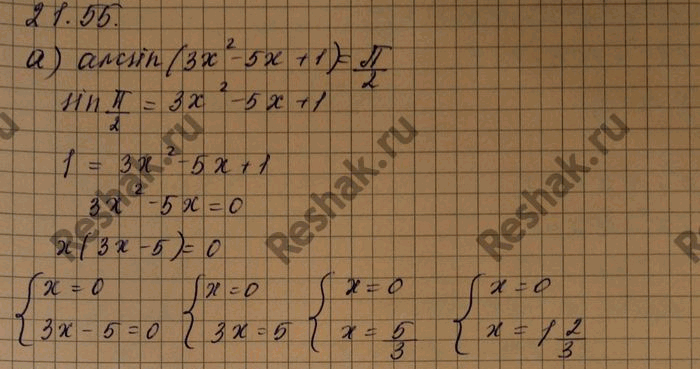 21.55.
а) arcsin(3x² - 5x + 1) = π/2
sin π/2 = 3x² - 5x + 1
1 = 3x² - 5x + 1
3x² - 5x = 0
x(3x - 5) = 0
{ x = 0 { x = 0 { x = 0 { x = 0
3x - 5 = 0 3x = 5 x = 5/3 x = 1 2/3
Reshak.ru
Reshak.ru
Reshak.ru